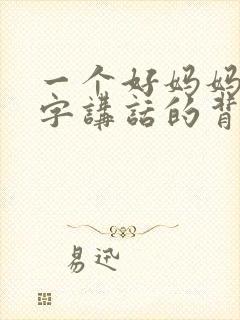 一个好妈妈
字講話的背
易迅